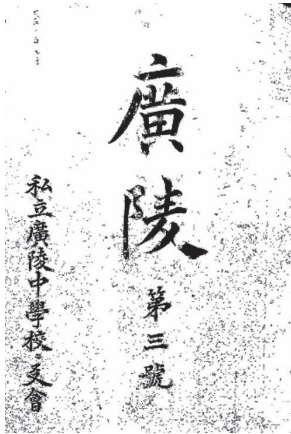 廣陵
第三號
私立廣陵中學校友會